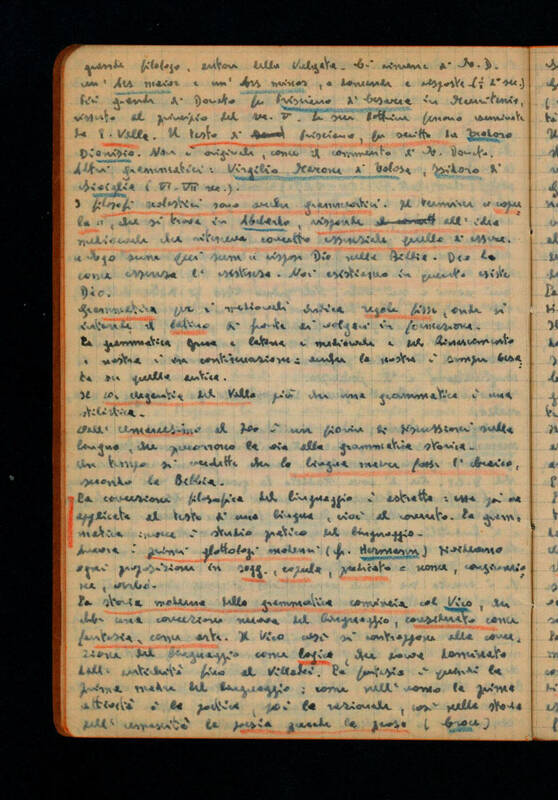 grande filologo, autore della Vulgata. Ci rimane di A. D.
un' Ars maior e un' Ars minor, a domande e risposte (4º sec.)
Più grande di Donato fu Prisciano di Cesarea in Mauritania,
vissuto al principio del sec. V. Le sue dottrine furono
da L. Valla. Il testo di Prisciano, fu scritto da
Dionisio. Non è originale, come il commento di A. Donato.
Altri grammatici: Virgilio Marone di Tolosa, Isidoro di
Siviglia (VI-VII sec.).
I filosofi scolastici sono anche grammatici. Il termine « copu
la », che si trova in Abelardo, risponde all' idea
medioevale che riteneva concetto essenziale quello di essere.
« Ego sum qui sum » rispose Dio nella Bibbia. Dio ha
come essenza l' esistenza. Noi esistiamo in quanto esiste
Dio.
Grammatica per i medioevali indica regole fisse, onde si
intende il latino di fronte ai volgari in formazione.
La grammatica greca e latina e medioevale e del Rinascimento
e nostra è in continuazione: anche la nostra è sempre basa
ta su quella antica.
Il de elegantia del Valla più che una grammatica è una
stilistica.
Dall' umanesimo al 700 è un fiorire di discussioni sulla
lingua, che precorrono la via alla grammatica storica.
Un tempo si credette che la lingua madre fosse l' ebraico,
secondo la Bibbia.
La concezione filosofica del linguaggio è astratta: essa poi va
applicata al testo di una lingua, cioè al concreto. La gram-
matica invece è studio pratico del linguaggio.
Ancora i primi glottologi moderni (fr. Hermann) risolvevano
ogni proposizione in sogg., copula, predicato = nome, congiunzio
ne, verbo.
La storia moderna della grammatica comincia col Vico, che
ebbe una concezione nuova del linguaggio, considerato come
fantasia, come arte. Il Vico così si contrappone alla conce-
zione del linguaggio come logica, che aveva dominato
dall' antichità fino al . La fantasia è quindi la
prima madre del linguaggio: come nell' uomo la prima
attività è la poetica, poi la razionale, così nella storia
dell' umanità la poesia precede la prosa (Croce)